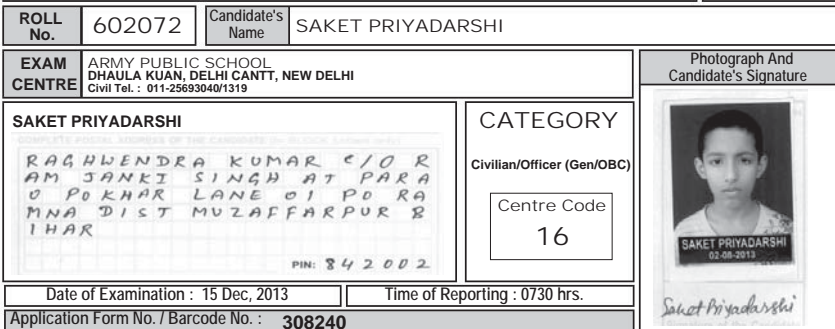 ROLL No. 602072 Candidate's Name SAKET PRIYADARSHI
EXAM CENTRE ARMY PUBLIC SCHOOL
DHAULA KUAN, DELHI CANTT, NEW DELHI
Civil Tel. : 011-25693040/1319
Photograph And
Candidate's Signature
SAKET PRIYADARSHI
COMPLETE POSTAL ADDRESS OF THE CANDIDATE
RAGHWENDRA KUMAR C/O R
AM JANKI SINGH AT PARA
O POKHAR LANE 01 PO RA
MNA DIST MUZAFFARPUR B
IHAR
PIN: 842002
CATEGORY
Civilian/Officer (Gen/OBC)
Centre Code
16
SAKET PRIYADARSHI
02-08-2013
Saket Priyadarshi
Date of Examination : 15 Dec, 2013 Time of Reporting : 0730 hrs.
Application Form No. / Barcode No. : 308240